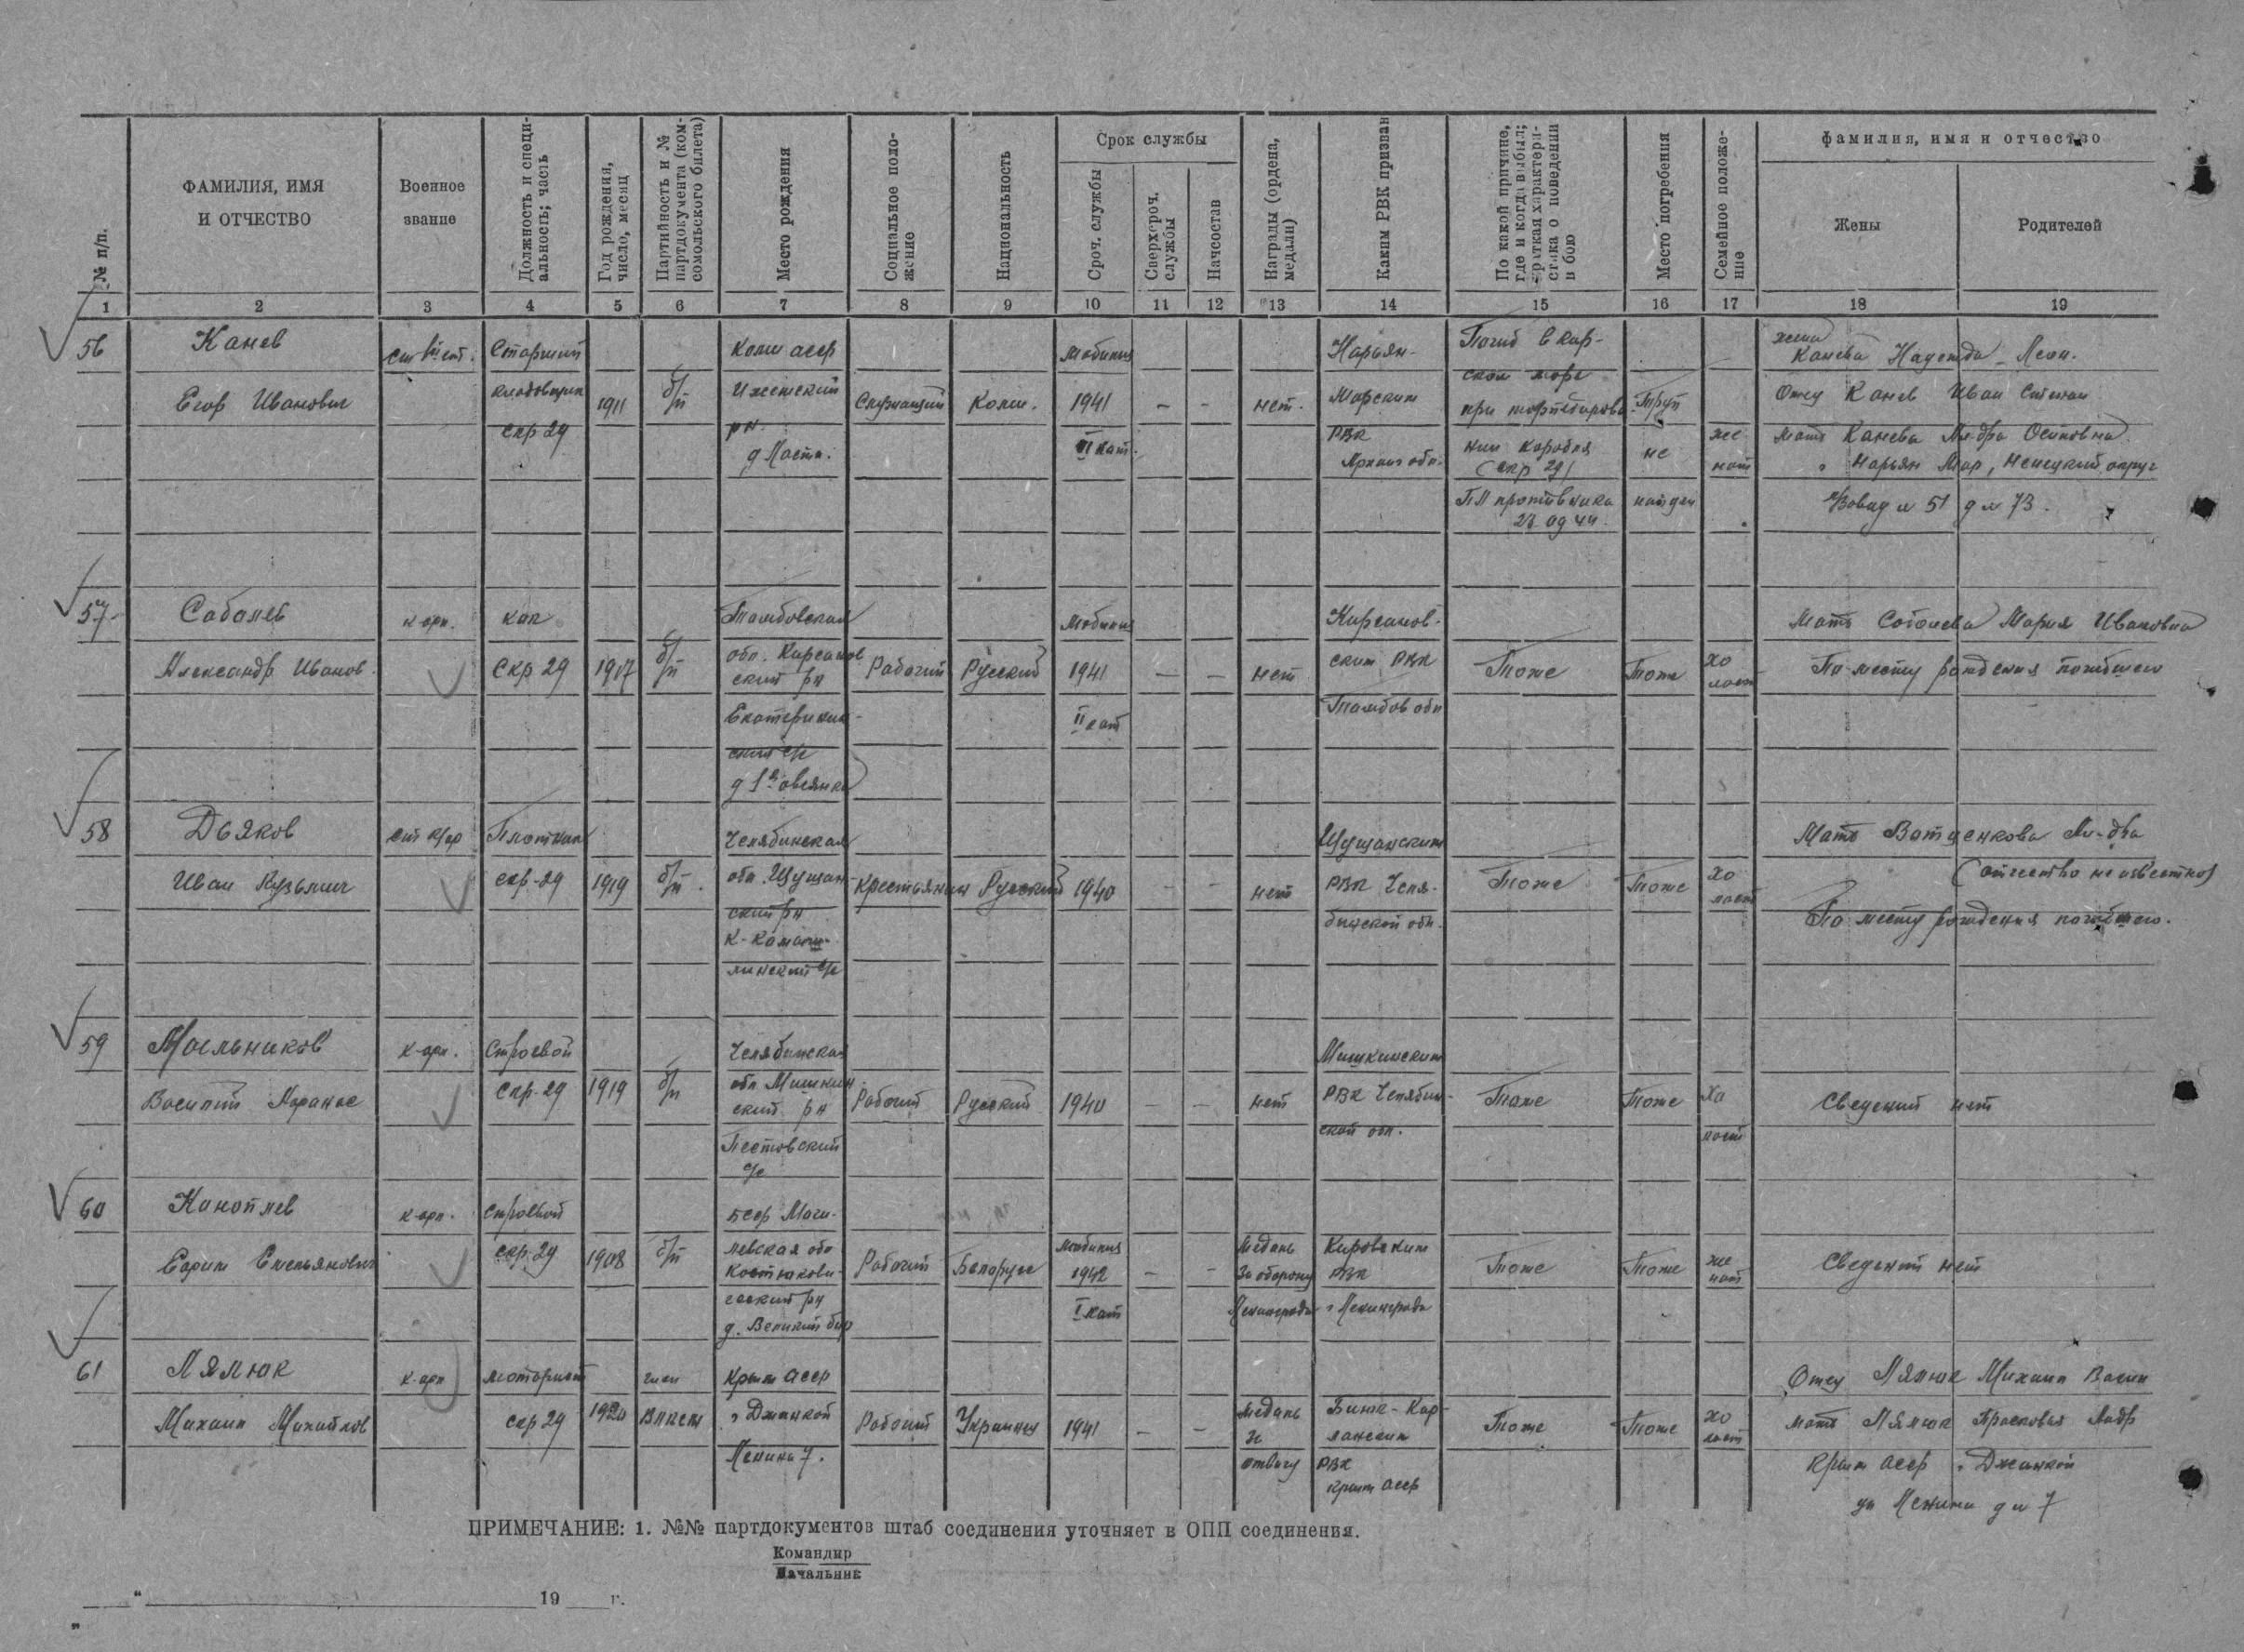 ФАМИЛИЯ, ИМЯ
И ОТЧЕСТВО
№ п/п.
Военное
звание
Должность и специ-
альность; часть
Год рождения,
число, месяц
Партийность и №
партдокумента (ком-
сомольского билета)
Место рождения
Социальное поло-
жение
Национальность
Срок службы
Сроч. службы
Сверхсроч.
службы
Начсостав
Награды (ордена,
медали)
Каким РВК призван
По какой причине,
где и когда выбыл;
краткая характери-
стика о поведении
в бою
Место погребения
Семейное положе-
ние
фамилия, имя и отчество
Жены
Родителей
1 2 3 4 5 6 7 8 9 10 11 12 13 14 15 16 17 18 19
56
Канев
Егор Иванович
Старший
кладовщик
скр 29
1911
б/п
Коми асср
Ижемский
рн.
Служащий
Коми.
Мобилиз
1941
II кат.
—
-
нет.
Нарьян-
Марским
РВК
Арханг обл.
Погиб в Кар-
ском море
при торпедирова
нии корабля
(скр 29)
ПЛ противника
23 09 44.
Труп
не
найден
же
нат
жена
Канева Надежда Леон.
Отец Канев Иван Степан
мать Канева Ал-дра Осиповна
г Нарьян Мар, Ненецкий округ
57
Соболев
Александр Иванов.
к-арм.
кок
Скр 29
1917
б/п
Тамбовская
обл. Кирсанов
ский рн
Екатеринин-
ский с/с
д 1я овсянка
Рабочий
Русский
Мобилиз
1941
II кат
—
—
нет
Кирсанов-
ским РВК
Тамбов обл
Тоже
Тоже
хо
лост
Мать Соболева Мария Ивановна
По месту рождения погибшего
58
Дьяков
Иван Кузьмич
Плотник
скр-29
1919
б/п.
Челябинская
обл. Щучан-
ский рн
с/с
крестьянин
Русский
1940
-
-
нет
Щучанским
РВК Челя-
бинской обл.
Тоже
Тоже
Хо
лост
Мать Ватценкова Ал-дра
(отчество не известно)
По месту рождения погибшего.
59
Мыльников
Василий Афанас
к-арм.
Строевой
скр-29
1919
б/п
Челябинская
обл Мишкин
ский рн
Пестовский
с/с
Рабочий
Русский
1940
—
—
нет
Мишкинским
РВК Челябин-
ской обл.
Тоже
Тоже
Хо
лост
Сведений нет
60
Коноплев
Ефим Емельянович
к-арм.
Строевой
скр-29
1908
б/п
БССР Моги-
левская обл
Костюкови-
чский рн
д. Великий бор
Рабочий
Белорусс
Мобилиз
1942
I кат
—
-
Медаль
За оборону
Ленинграда
Кировским
РВК
г Ленинграда
Тоже
Тоже
же
нат
Сведений нет
61
Лялюк
Михаил Михайлов
к-арм
моторист
скр 29
1920
член
ВЛКСМ
Крым асср
г Джанкой
Ленина 7.
Рабочий
Украинец
1941
—
—
медаль
за
отвагу
Биюк-Кар-
РВК
Крым АССР
Тоже
Тоже
хо
лост
Отец Лялюк Михаил Васил
мать Лялюк Прасковья Андр
Крым асср г Джанкой
ул Ленина д № 7
ПРИМЕЧАНИЕ: 1. №№ партдокументов штаб соединения уточняет в ОПП соединения.
Командир
Начальник
" 19 г.